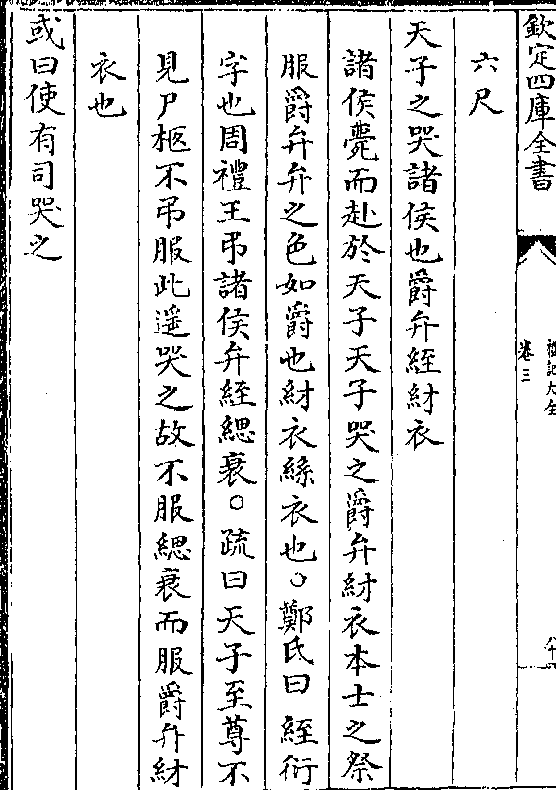 欽定四庫全書
禮記大全
卷三
六尺
天子之哭諸侯也爵弁絰紂衣
諸侯薨而赴於天子天子哭之爵弁紂衣本士之祭
服爵弁弁之色如爵也紂衣絲衣也○鄭氏曰絰衍
字也周禮王弔諸侯弁絰緦衰○疏曰天子至尊不
見尸柩不弔服此遥哭之故不服緦衰而服爵弁紂
衣也
或曰使有司哭之